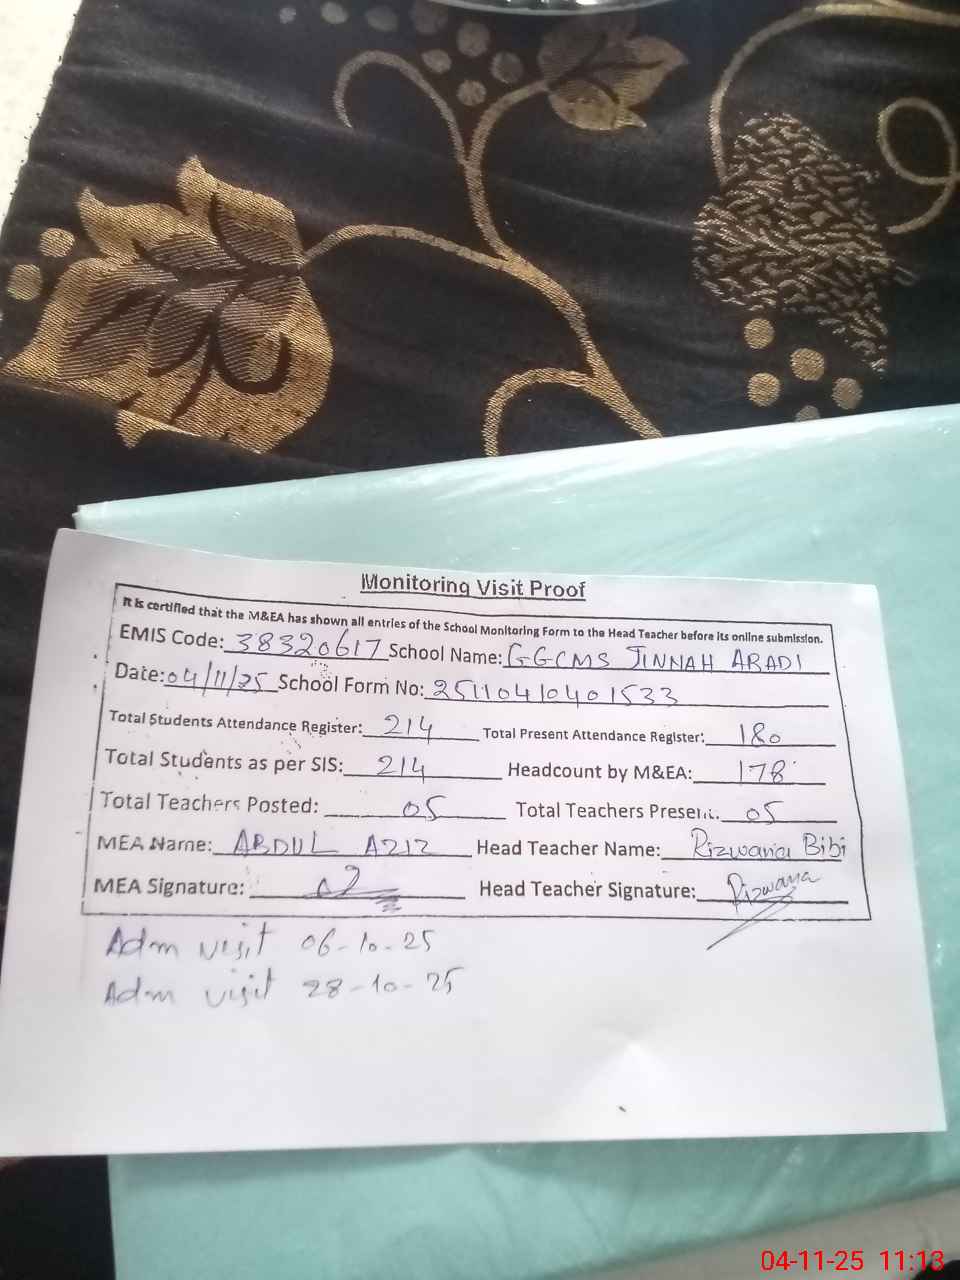 Monitoring Visit Proof
It is certified that the M&EA has shown all entries of the School Monitoring Form to the Head Teacher before its online submission.
EMIS Code: 38320617 School Name: GGCMS JINNAH ABADI
Date: 04/11/25 School Form No: 2511041040401533
Total Students Attendance Register: 214 Total Present Attendance Register: 180
Total Students as per SIS: 214 Headcount by M&EA: 178
Total Teachers Posted: 05 Total Teachers Present: 05
MEA Name: ABDUL AZIZ Head Teacher Name: Rizwana Bibi
MEA Signature: Head Teacher Signature: Rizwana
Adm visit 06-10-25
Adm visit 28-10-25
04-11-25 11:13